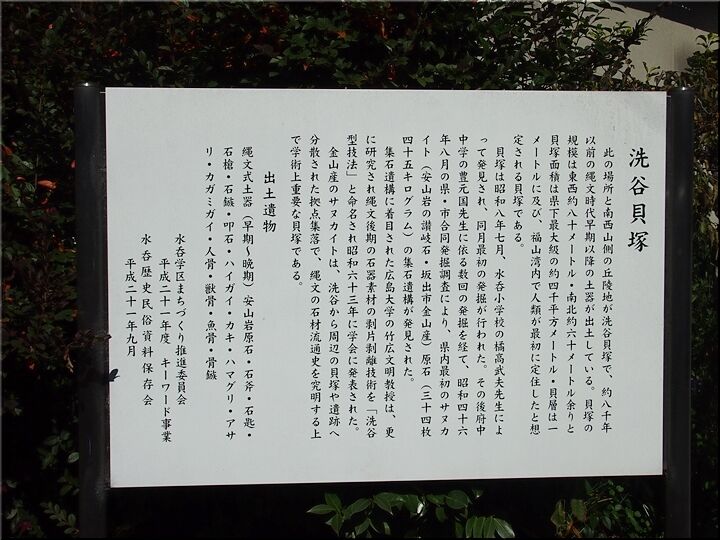 洗谷貝塚
此の場所と南西山側の丘陵地が洗谷貝塚で、約八千年
以前の縄文時代早期以降の土器が出土している。貝塚の
規模は東西約八十メートル・南北約六十メートル余りと
貝塚面積は県下最大級の約四千平方メートル・貝層は一
メートルに及び、福山湾内で人類が最初に定住したと想
定される貝塚である。
貝塚は昭和八年七月、水呑小学校の橘高武夫先生によ
って発見され、同月最初の発掘が行われた。その後府中
中学の豊元国先生に依る数回の発掘を経て、昭和四十六
年八月の県・市合同発掘調査により、県内最初のサヌカ
イト（安山岩の讃岐石・坂出市金山産）原石（三十四枚
四十五キログラム）の集石遺構が発見された。
集石遺構に着目された広島大学の竹広文明教授は、更
に研究され縄文後期の石器素材の剥片剥離技術を「洗谷
型技法」と命名され昭和六十三年に学会に発表された。
金山産のサヌカイトは、洗谷から周辺の貝塚や遺跡へ
分散された拠点集落で、縄文の石材流通史を究明する上
で学術上重要な貝塚である。
出土遺物
縄文式土器（早期～晩期）安山岩原石・石斧・石匙・
石槍・石鏃・叩石・ハイガイ・カキ・ハマグリ・アサ
リ・カガミガイ・人骨・獣骨・魚骨・骨鏃
水呑学区まちづくり推進委員会
平成二十一年度　キーワード事業
水呑歴史民俗資料保存会
平成二十一年九月